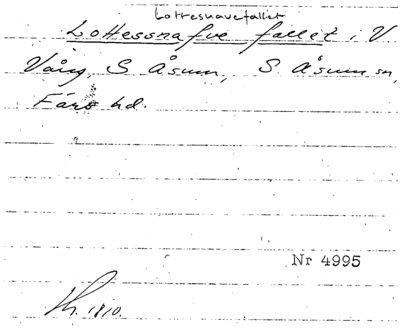 Lottesnavefallet
Lottessnafve fallet i V
Vång, S Åsum, S Åsum sn,
Färs hd.
Nr 4995
1810.